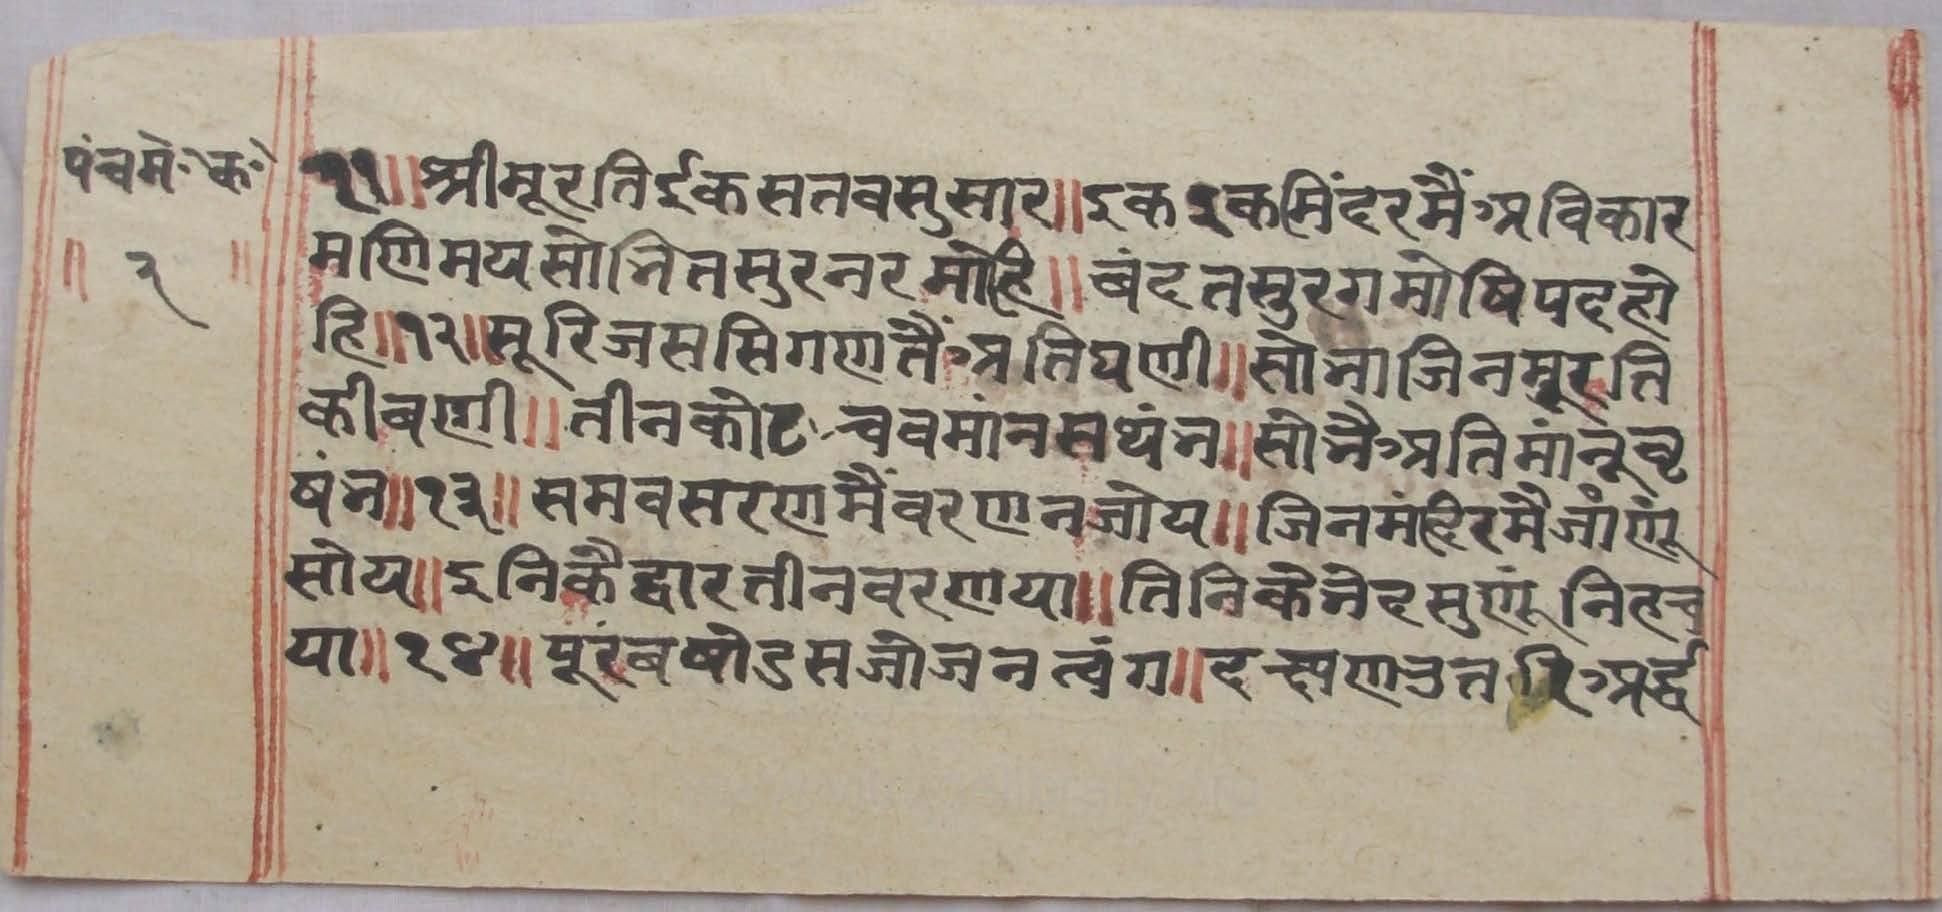 पंचमे॰ क॰
२
११॥ श्रीमूरति ईक सतवसु सार॥ इक इक मिंदर मैं अविकार
मणिमय सोभित सुर नर मोहि॥ बंदत सुरग मोषि पद हो
हि॥१२॥ सूरिज ससि गण तैं अति घणी॥ सोभा जिन मूरति
की बणी॥ तीन कोट चव मांन सथंभ॥ सोभै अति मांनू वृ
षंभ॥१३॥ समवसरण मैं वरणन जोय॥ जिन मंदिर मै जांणूं
सोय॥ इनिकै द्वार तीन वरणया॥ तिनिके भेद सुणूं निहच
या॥१४॥ पूरब षोडस जोजन त्वंग॥ दच्छण उतरि अर्द्ध